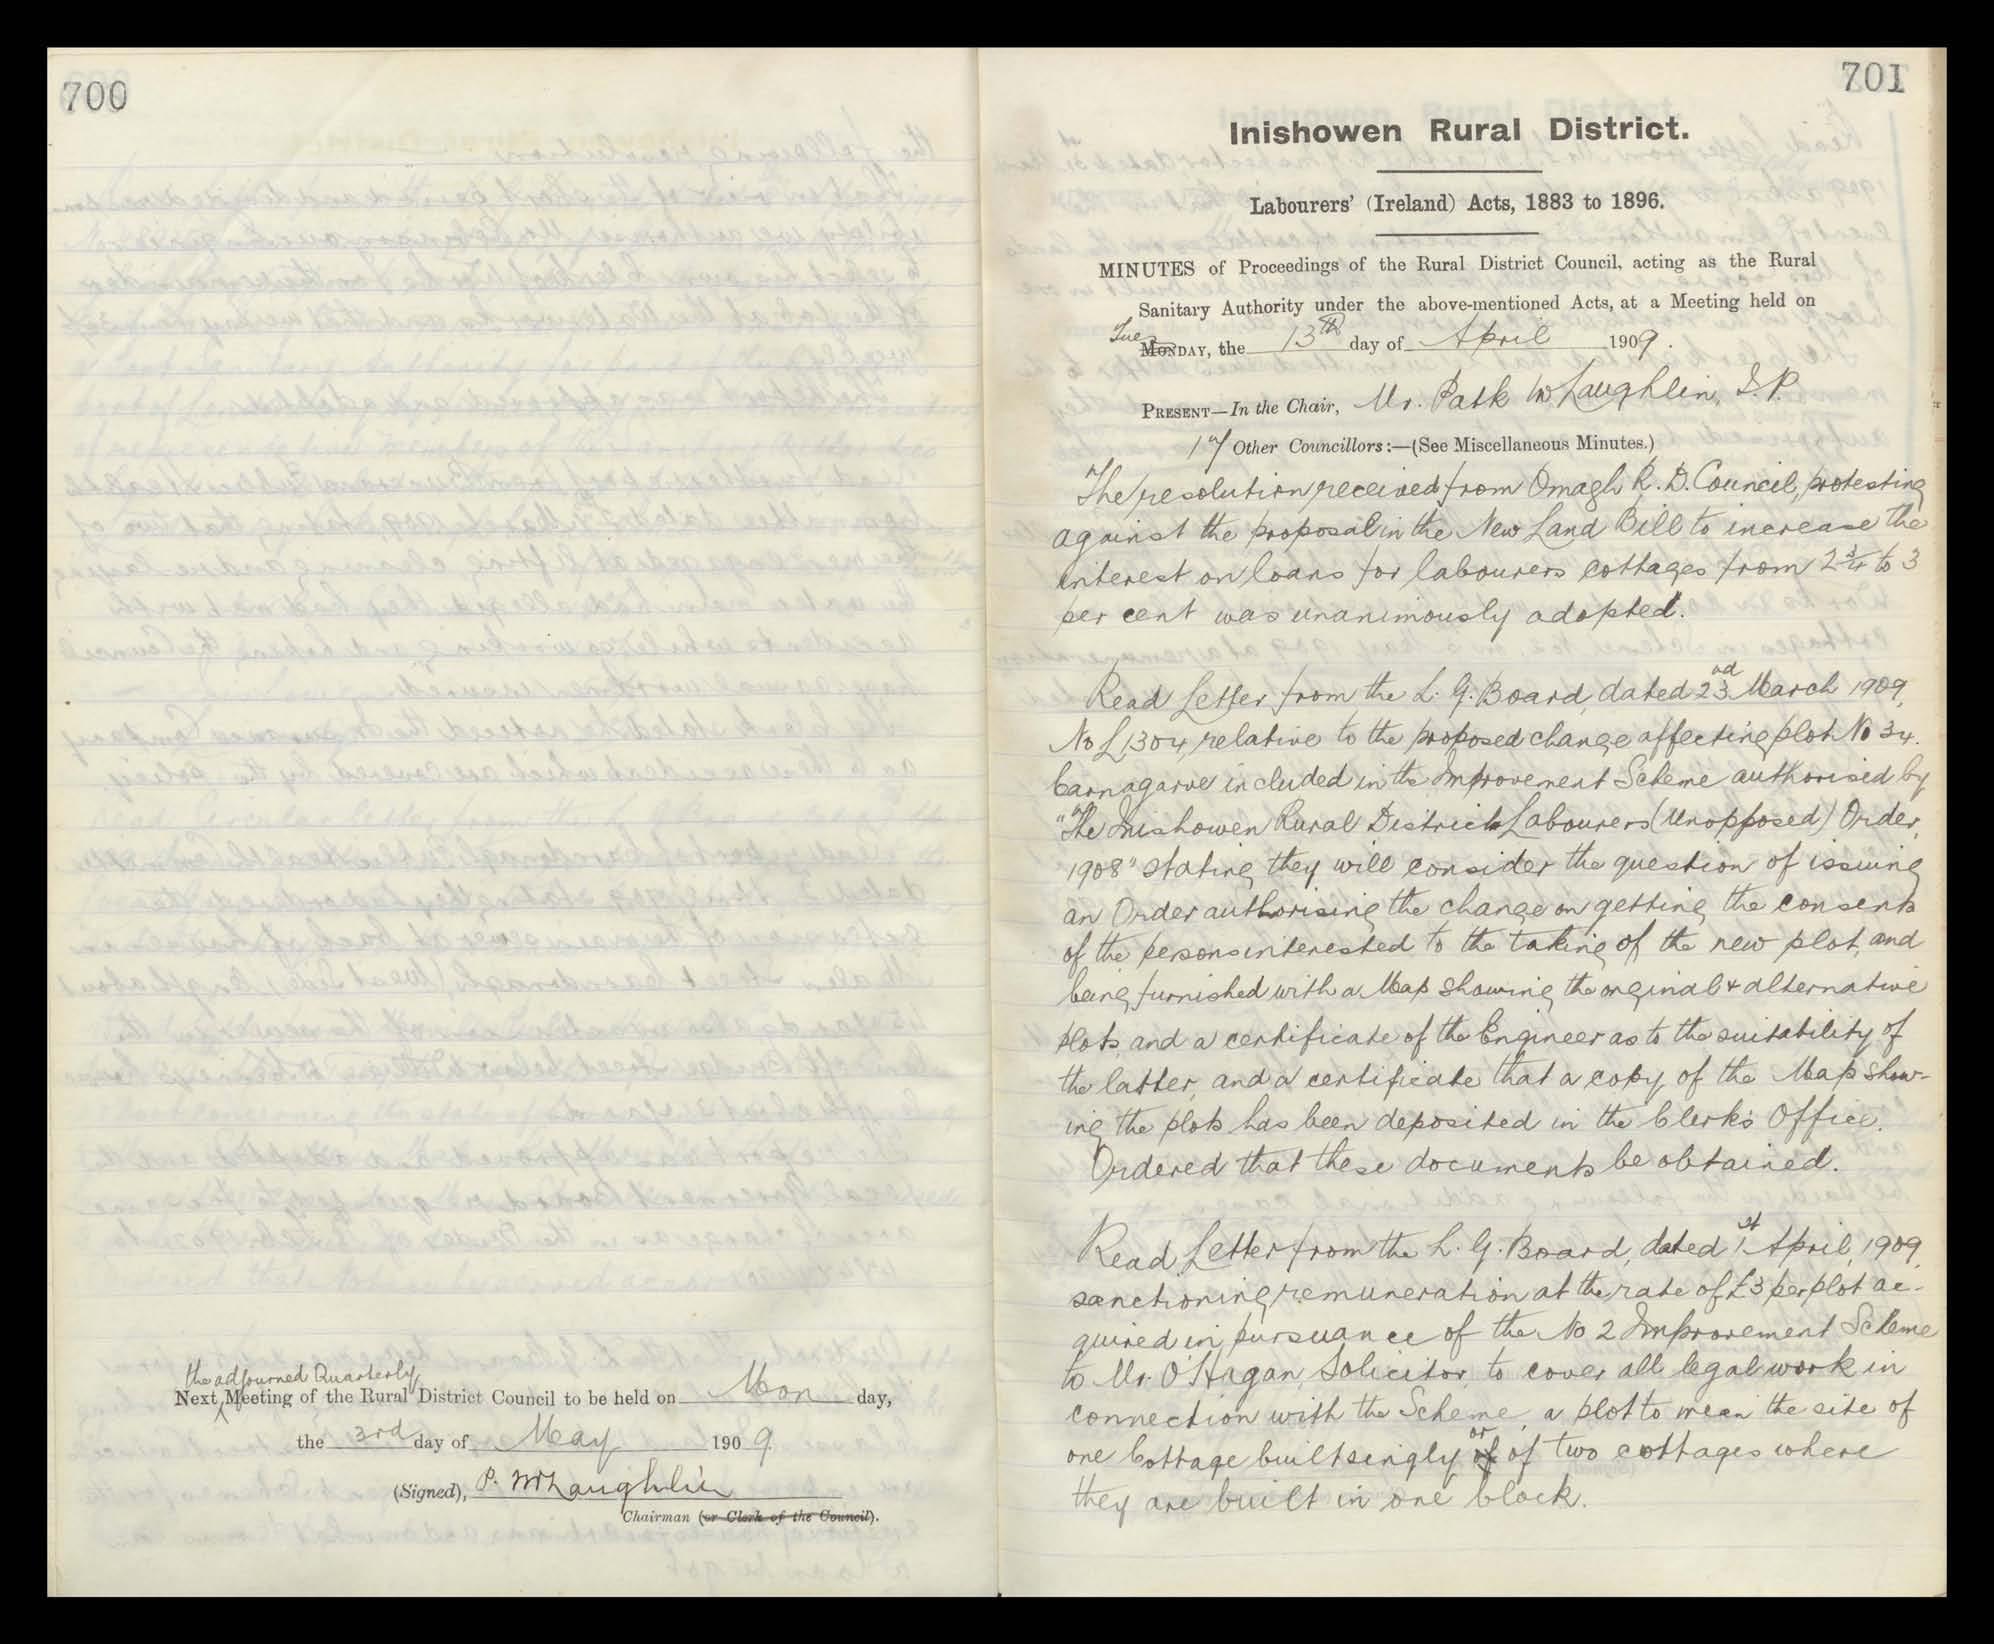 700
the adjourned Quarterly
Next Meeting of the Rural District Council to be held on Mon day,
the 3rd day of May 1909.
(Signed), P. McLaughlin
Chairman (or Clerk of the Council).
701
Inishowen Rural District.
Labourers' (Ireland) Acts, 1883 to 1896.
MINUTES of Proceedings of the Rural District Council, acting as the Rural
Sanitary Authority under the above-mentioned Acts, at a Meeting held on
Tue
MONDAY, the 13th day of April 1909.
PRESENT—In the Chair, Mr. Patk McLaughlin, J.P.
17 Other Councillors:—(See Miscellaneous Minutes.)
The resolution received from Omagh R. D. Council, protesting
against the proposal in the New Land Bill to increase the
interest on loans for labourers cottages from 2 3/4 to 3
per cent was unanimously adopted.
Read Letter from the L. G. Board, dated 23rd March 1909,
No L 1304, relative to the proposed change affecting plot No 34.
Carnagarve included in the Improvement Scheme authorised by
"The Inishowen Rural District Labourers (Unopposed) Order,
1908" stating they will consider the question of issuing
an Order authorising the change on getting the consents
of the persons interested to the taking of the new plot, and
being furnished with a Map showing the orginal & alternative
plots, and a certificate of the Engineer as to the suitability of
the latter, and a certificate that a copy of the Map show-
ing the plots has been deposited in the Clerk's Office.
Ordered that these documents be obtained.
Read Letter from the L. G. Board, dated 1st April, 1909,
sanctioning remuneration at the rate of £3 per plot ac-
quired in pursuance of the No 2 Improvement Scheme
to Mr. O'Hagan, Solicitor, to cover all legal work in
connection with the Scheme, a plot to mean the site of
one Cottage built singly or of two cottages where
they are built in one block.